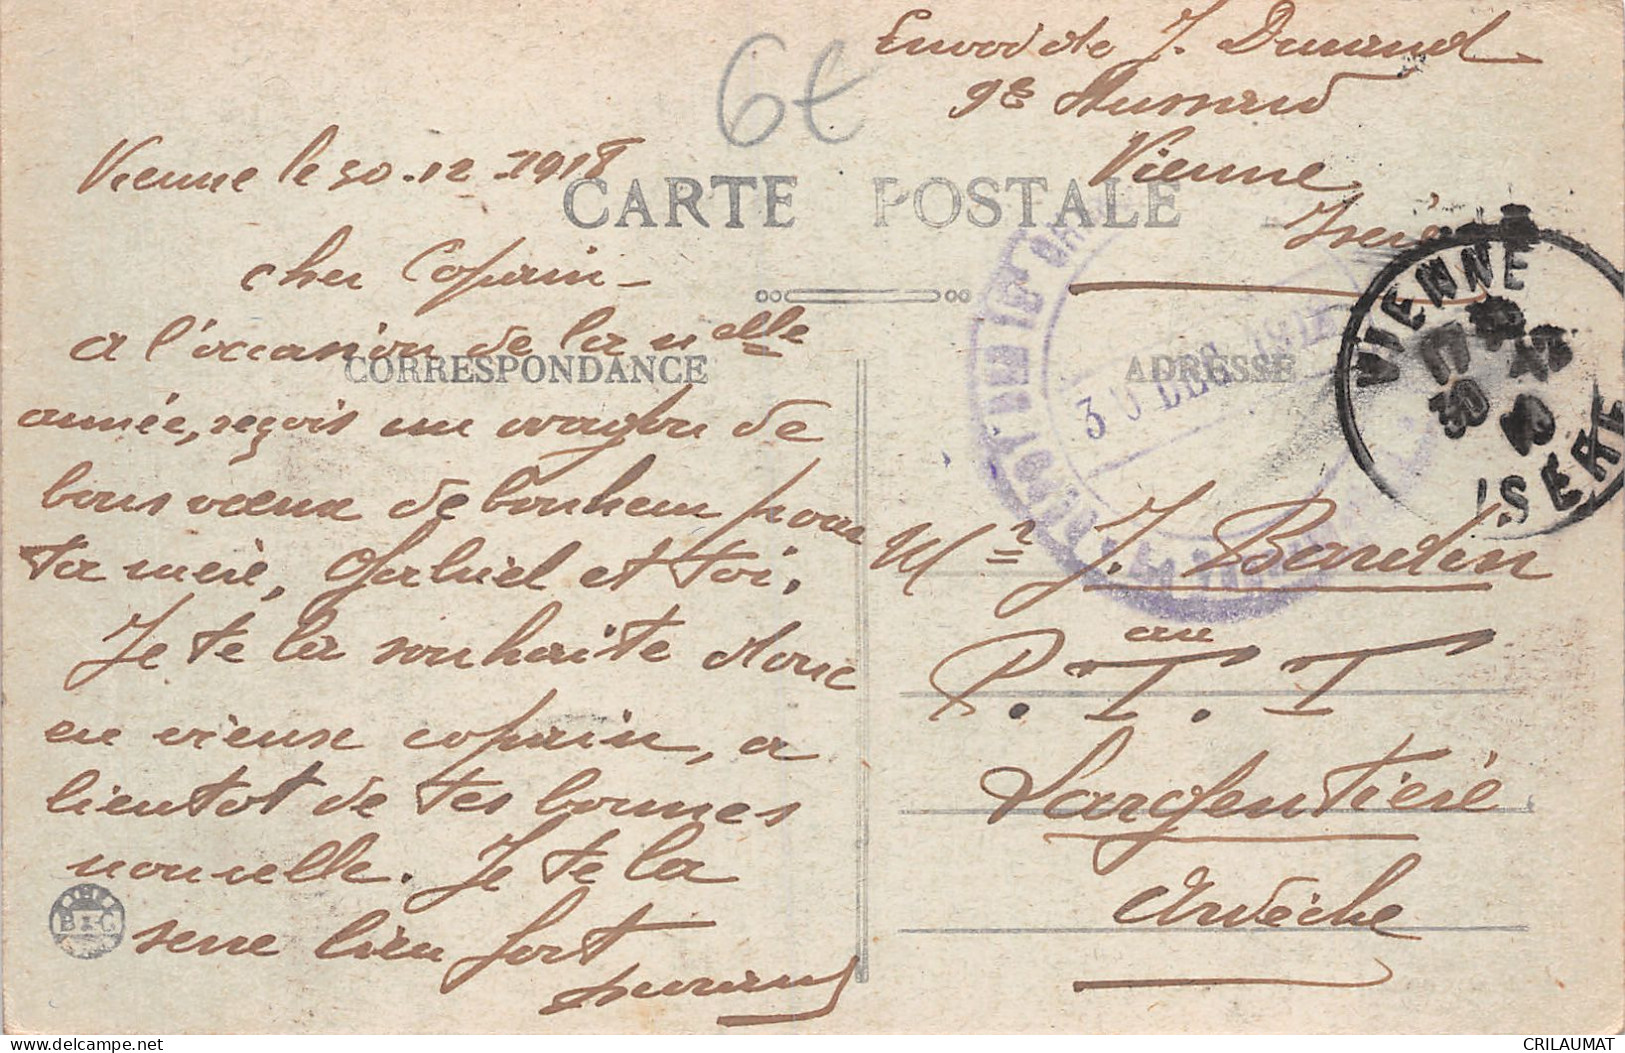 Envoi de J. Durand
9e Hussard
Vienne
Isère
6€
Vienne le 30.12.1918
CARTE POSTALE
cher Copain -
a l'occasion de la nelle
CORRESPONDANCE
ADRESSE
année, reçois un wagon de
bons vœux de bonheur pour
ta mère, Gabriel et toi.
Je te la souhaite donc
en vieux copain, a
bientot de tes bonnes
nouvelle. Je te la
serre bien fort
Durand
B & C
30 DEC 1918
VIENNE
17 30
30 12
ISERE
Mr J. Bardin
au
P. T. T
Largentière
Ardèche
CRILAUMAT